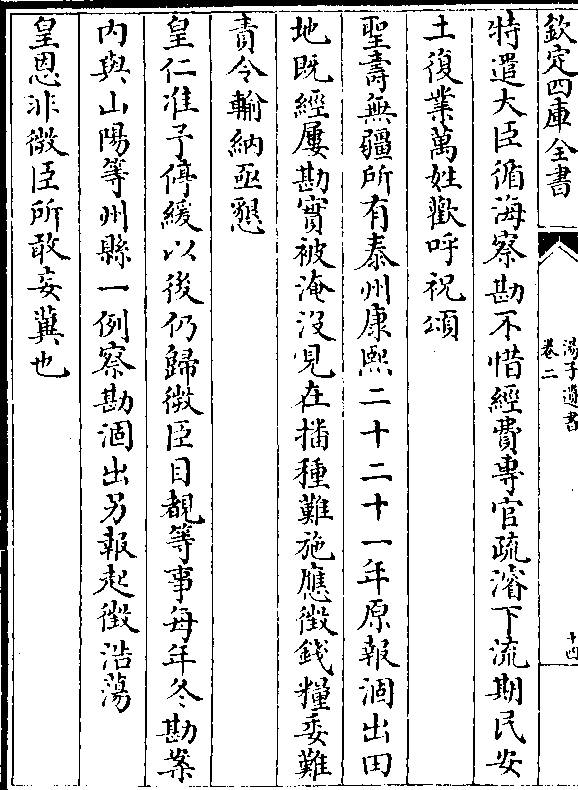 欽定四庫全書
湯子遺書
卷二
十四
特遣大臣循海察勘不惜經費專官疏濬下流期民安
土復業萬姓歡呼祝頌
聖壽無疆所有泰州康熙二十二十一年原報涸出田
地既經屢勘實被淹沒見在播種難施應徵錢糧委難
責令輸納亟懇
皇仁准予停緩以後仍歸微臣目覩等事每年冬勘案
內與山陽等州縣一例察勘涸出另報起徵浩蕩
皇恩非微臣所敢妄冀也